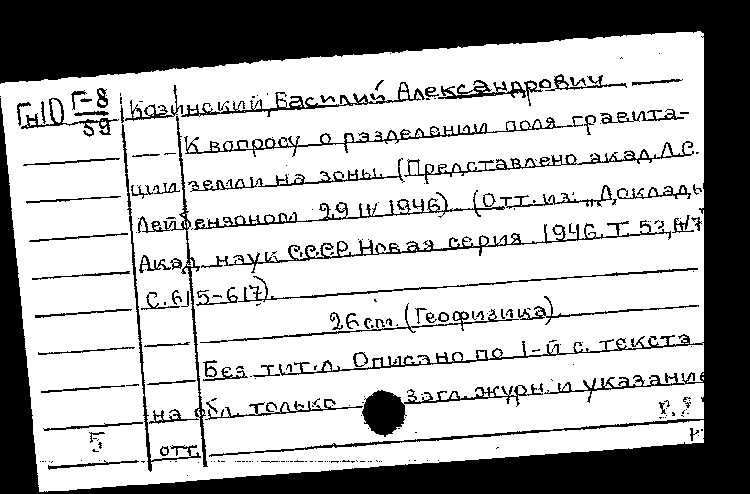 Гн10 Г-8/59
Казинский, Василий Александрович
К вопросу о разделении поля гравита-
ции земли на зоны. (Представлено акад. Л.С.
Лейбензоном 29 IV 1946). (Отт. из: „Доклады
Акад. наук СССР. Новая серия. 1946. Т. 53, №7
С. 615-617).
26 см. (Геофизика).
Без тит. л. Описано по 1-й с. текста
на обл. только загл. журн. и указание
5 отт.